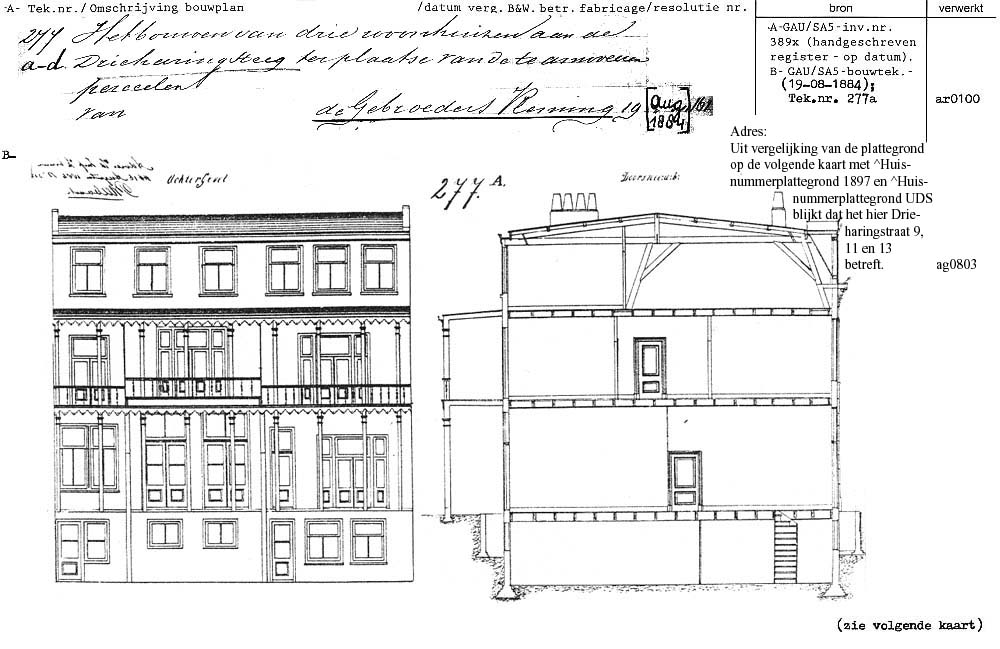 -A- Tek.nr./Omschrijving bouwplan /datum verg. B&W. betr. fabricage/resolutie nr. bron verwerkt
277 Het bouwen van drie woonhuizen aan de
a-d. Drieharingsteeg ter plaatse van de te amoveeren
perceelen
van de Gebroeders Koning, 19 [Aug. 1884]
-A-GAU/SA5-inv.nr.
389x (handgeschreven
register - op datum).
B- GAU/SA5-bouwtek.-
(19-08-1884);
Tek.nr. 277a ar0100
Adres:
Uit vergelijking van de plattegrond
op de volgende kaart met ^Huis-
nummerplattegrond 1897 en ^Huis-
nummerplattegrond UDS
blijkt dat het hier Drie-
haringstraat 9,
11 en 13
betreft. ag0803
B-
Achtergevel
277. A.
Doorsnede
(zie volgende kaart)